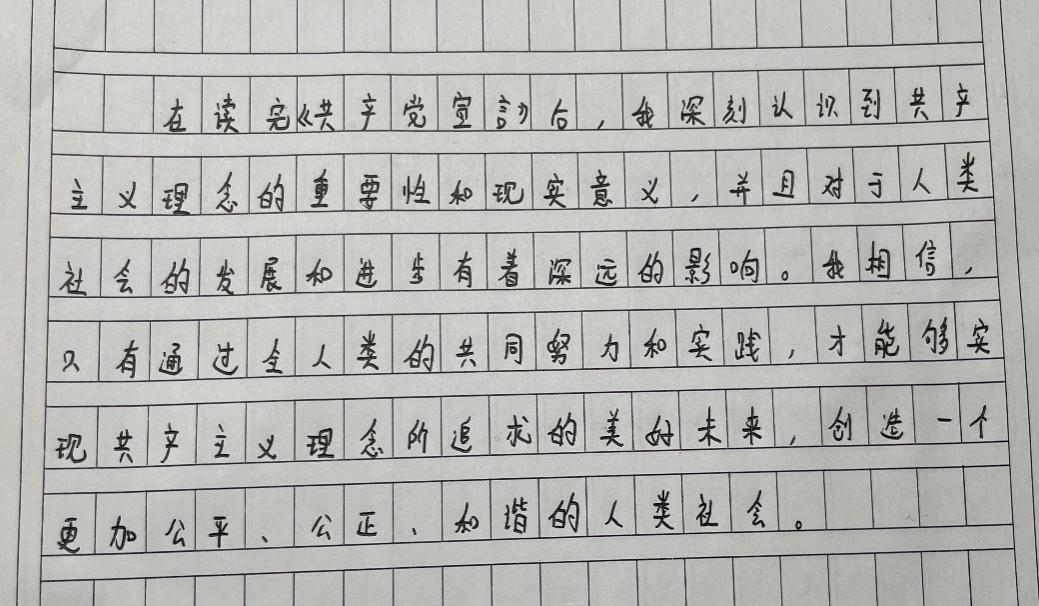 在读完《共产党宣言》后，我深刻认识到共产
主义理念的重要性和现实意义，并且对于人类
社会的发展和进步有着深远的影响。我相信，
只有通过全人类的共同努力和实践，才能够实
现共产主义理念所追求的美好未来，创造一个
更加公平、公正、和谐的人类社会。